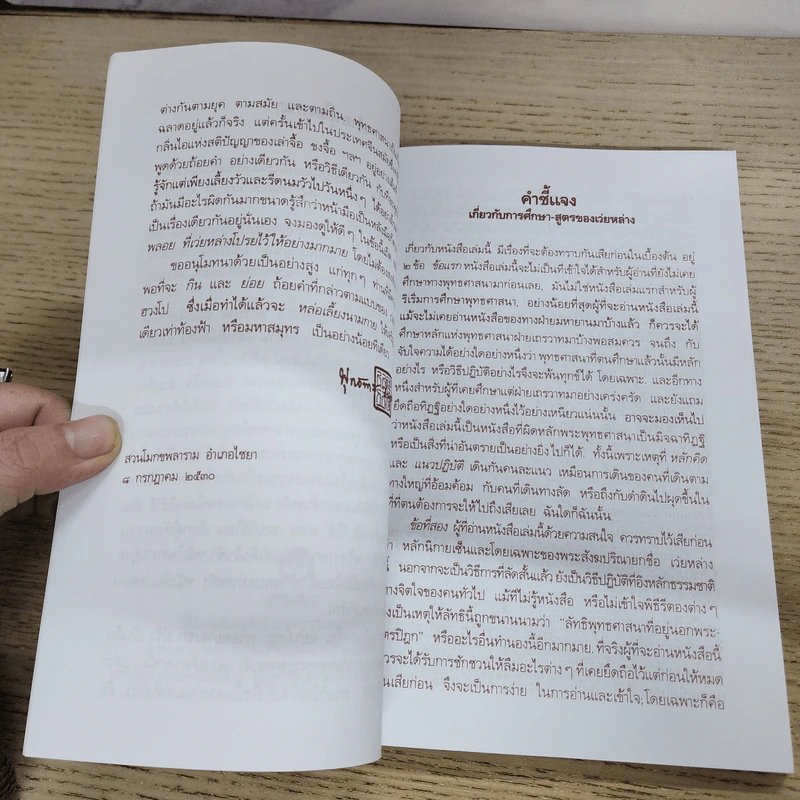 ต่างกันตามยุค ตามสมัย และตามถิ่น พุทธศาสนา
ฉลาดอยู่แล้วก็จริง แต่ครั้นเข้าไปในประเทศจีน
กลิ่นไอแห่งสติปัญญาของเล่าจื้อ ขงจื้อ ฯลฯ
พูดด้วยถ้อยคำ อย่างเดียวกัน หรือวิธีเดียวกัน
รู้จักแต่เพียงเลี้ยงวัวและรีดนมวัวไปวันหนึ่งๆ
ถ้ามันมีอะไรผิดกันมากขนาดรู้สึกว่าหน้ามือเป็นหลังมือ
เป็นเรื่องเดียวกันอยู่นั่นเอง จงมองดูให้ดีๆ ในข้อนี้เถิด
พลอย ที่เว่ยหล่างโปรยไว้ให้อย่างมากมาย
ขออนุโมทนาด้วยเป็นอย่างสูง แก่ทุกๆ ท่าน
พอที่จะ กิน และ ย่อย ถ้อยคำที่กล่าวตามแบบของ
ฮวงโป ซึ่งเมื่อทำได้แล้วจะ หล่อเลี้ยงนามกาย
เดียวเท่าท้องฟ้า หรือมหาสมุทร เป็นอย่างน้อยทีเดียว
สวนโมกขพลาราม อำเภอไชยา
๘ กรกฎาคม ๒๕๓๐
คำชี้แจง
เกี่ยวกับการศึกษา-สูตรของเว่ยหล่าง
เกี่ยวกับหนังสือเล่มนี้ มีเรื่องที่จะต้องทราบกันเสียก่อนในเบื้องต้น อยู่
๒ ข้อ ข้อแรก หนังสือเล่มนี้จะไม่เป็นที่เข้าใจได้สำหรับผู้อ่านที่ยังไม่เคย
ศึกษาทางพุทธศาสนามาก่อนเลย. มันไม่ใช่หนังสือเล่มแรกสำหรับผู้
ริเริ่มการศึกษาพุทธศาสนา, อย่างน้อยที่สุดผู้ที่จะอ่านหนังสือเล่มนี้
แม้จะไม่เคยอ่านหนังสือของทางฝ่ายมหายานมาบ้างแล้ว ก็ควรจะได้
ศึกษาหลักแห่งพุทธศาสนาฝ่ายเถรวาทมาบ้างพอสมควร จนถึง กับ
จับใจความได้อย่างใดอย่างหนึ่งว่า พุทธศาสนาที่ตนศึกษาแล้วนั้นมีหลัก
อย่างไร หรือวิธีปฏิบัติอย่างไรจึงจะพ้นทุกข์ได้ โดยเฉพาะ. และอีกทาง
หนึ่งสำหรับผู้ที่เคยศึกษาแต่ฝ่ายเถรวาทมาอย่างเคร่งครัด และยังแถม
ยึดถือทิฏฐิอย่างใดอย่างหนึ่งไว้อย่างเหนียวแน่นนั้น อาจจะมองเห็นไป
ว่าหนังสือเล่มนี้เป็นหนังสือที่ผิดหลักพระพุทธศาสนาเป็นมิจฉาทิฏฐิ
หรือเป็นสิ่งที่น่าอันตรายเป็นอย่างยิ่งไปก็ได้. ทั้งนี้เพราะเหตุที่ หลักคิด
และ แนวปฏิบัติ เดินกันคนละแนว เหมือนการเดินของคนที่เดินตาม
ทางใหญ่ที่อ้อมค้อม กับคนที่เดินทางลัด หรือถึงกับดำดินไปผุดขึ้นใน
ที่ที่ตนต้องการจะให้ไปถึงเสียเลย ฉันใดก็ฉันนั้น.
ข้อที่สอง ผู้ที่อ่านหนังสือเล่มนี้ด้วยความสนใจ ควรทราบไว้เสียก่อน
หลักนิกายเซ็นและโดยเฉพาะของพระสังฆปริณายกชื่อ เว่ยหล่าง
นอกจากจะเป็นวิธีการที่ลัดสั้นแล้ว ยังเป็นวิธีปฏิบัติที่อิงหลักธรรมชาติ
ทางจิตใจของคนทั่วไป แม้ที่ไม่รู้หนังสือ หรือไม่เข้าใจพิธีรีตองต่างๆ
เป็นเหตุให้ลัทธินี้ถูกขนานนามว่า “ลัทธิพุทธศาสนาที่อยู่นอกพระ-
ไตรปิฎก” หรืออะไรอื่นทำนองนี้อีกมากมาย. ที่จริงผู้ที่จะอ่านหนังสือนี้
ควรจะได้รับการชักชวนให้ลืมอะไรต่างๆ ที่เคยยึดถือไว้แต่ก่อนให้หมด
เสียก่อน จึงจะเป็นการง่าย ในการอ่านและเข้าใจ; โดยเฉพาะก็คือ